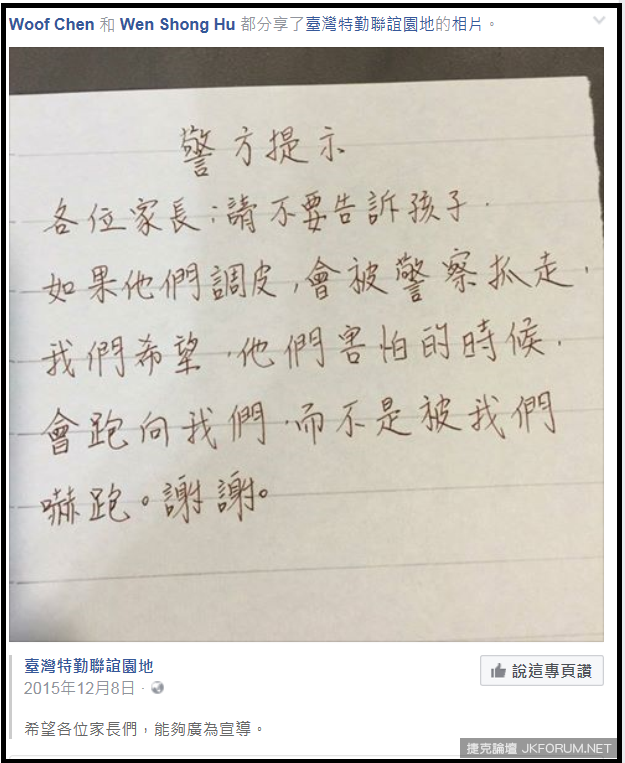 Woof Chen 和 Wen Shong Hu 都分享了臺灣特勤聯誼園地的相片。
警方提示
各位家長:請不要告訴孩子.
如果他們調皮,會被警察抓走.
我們希望,他們害怕的時候.
會跑向我們.而不是被我們
嚇跑。謝謝。
臺灣特勤聯誼園地
說這專頁讚
2015年12月8日 ·
希望各位家長們,能夠廣為宣導。
捷克論壇 JKFORUM.NET